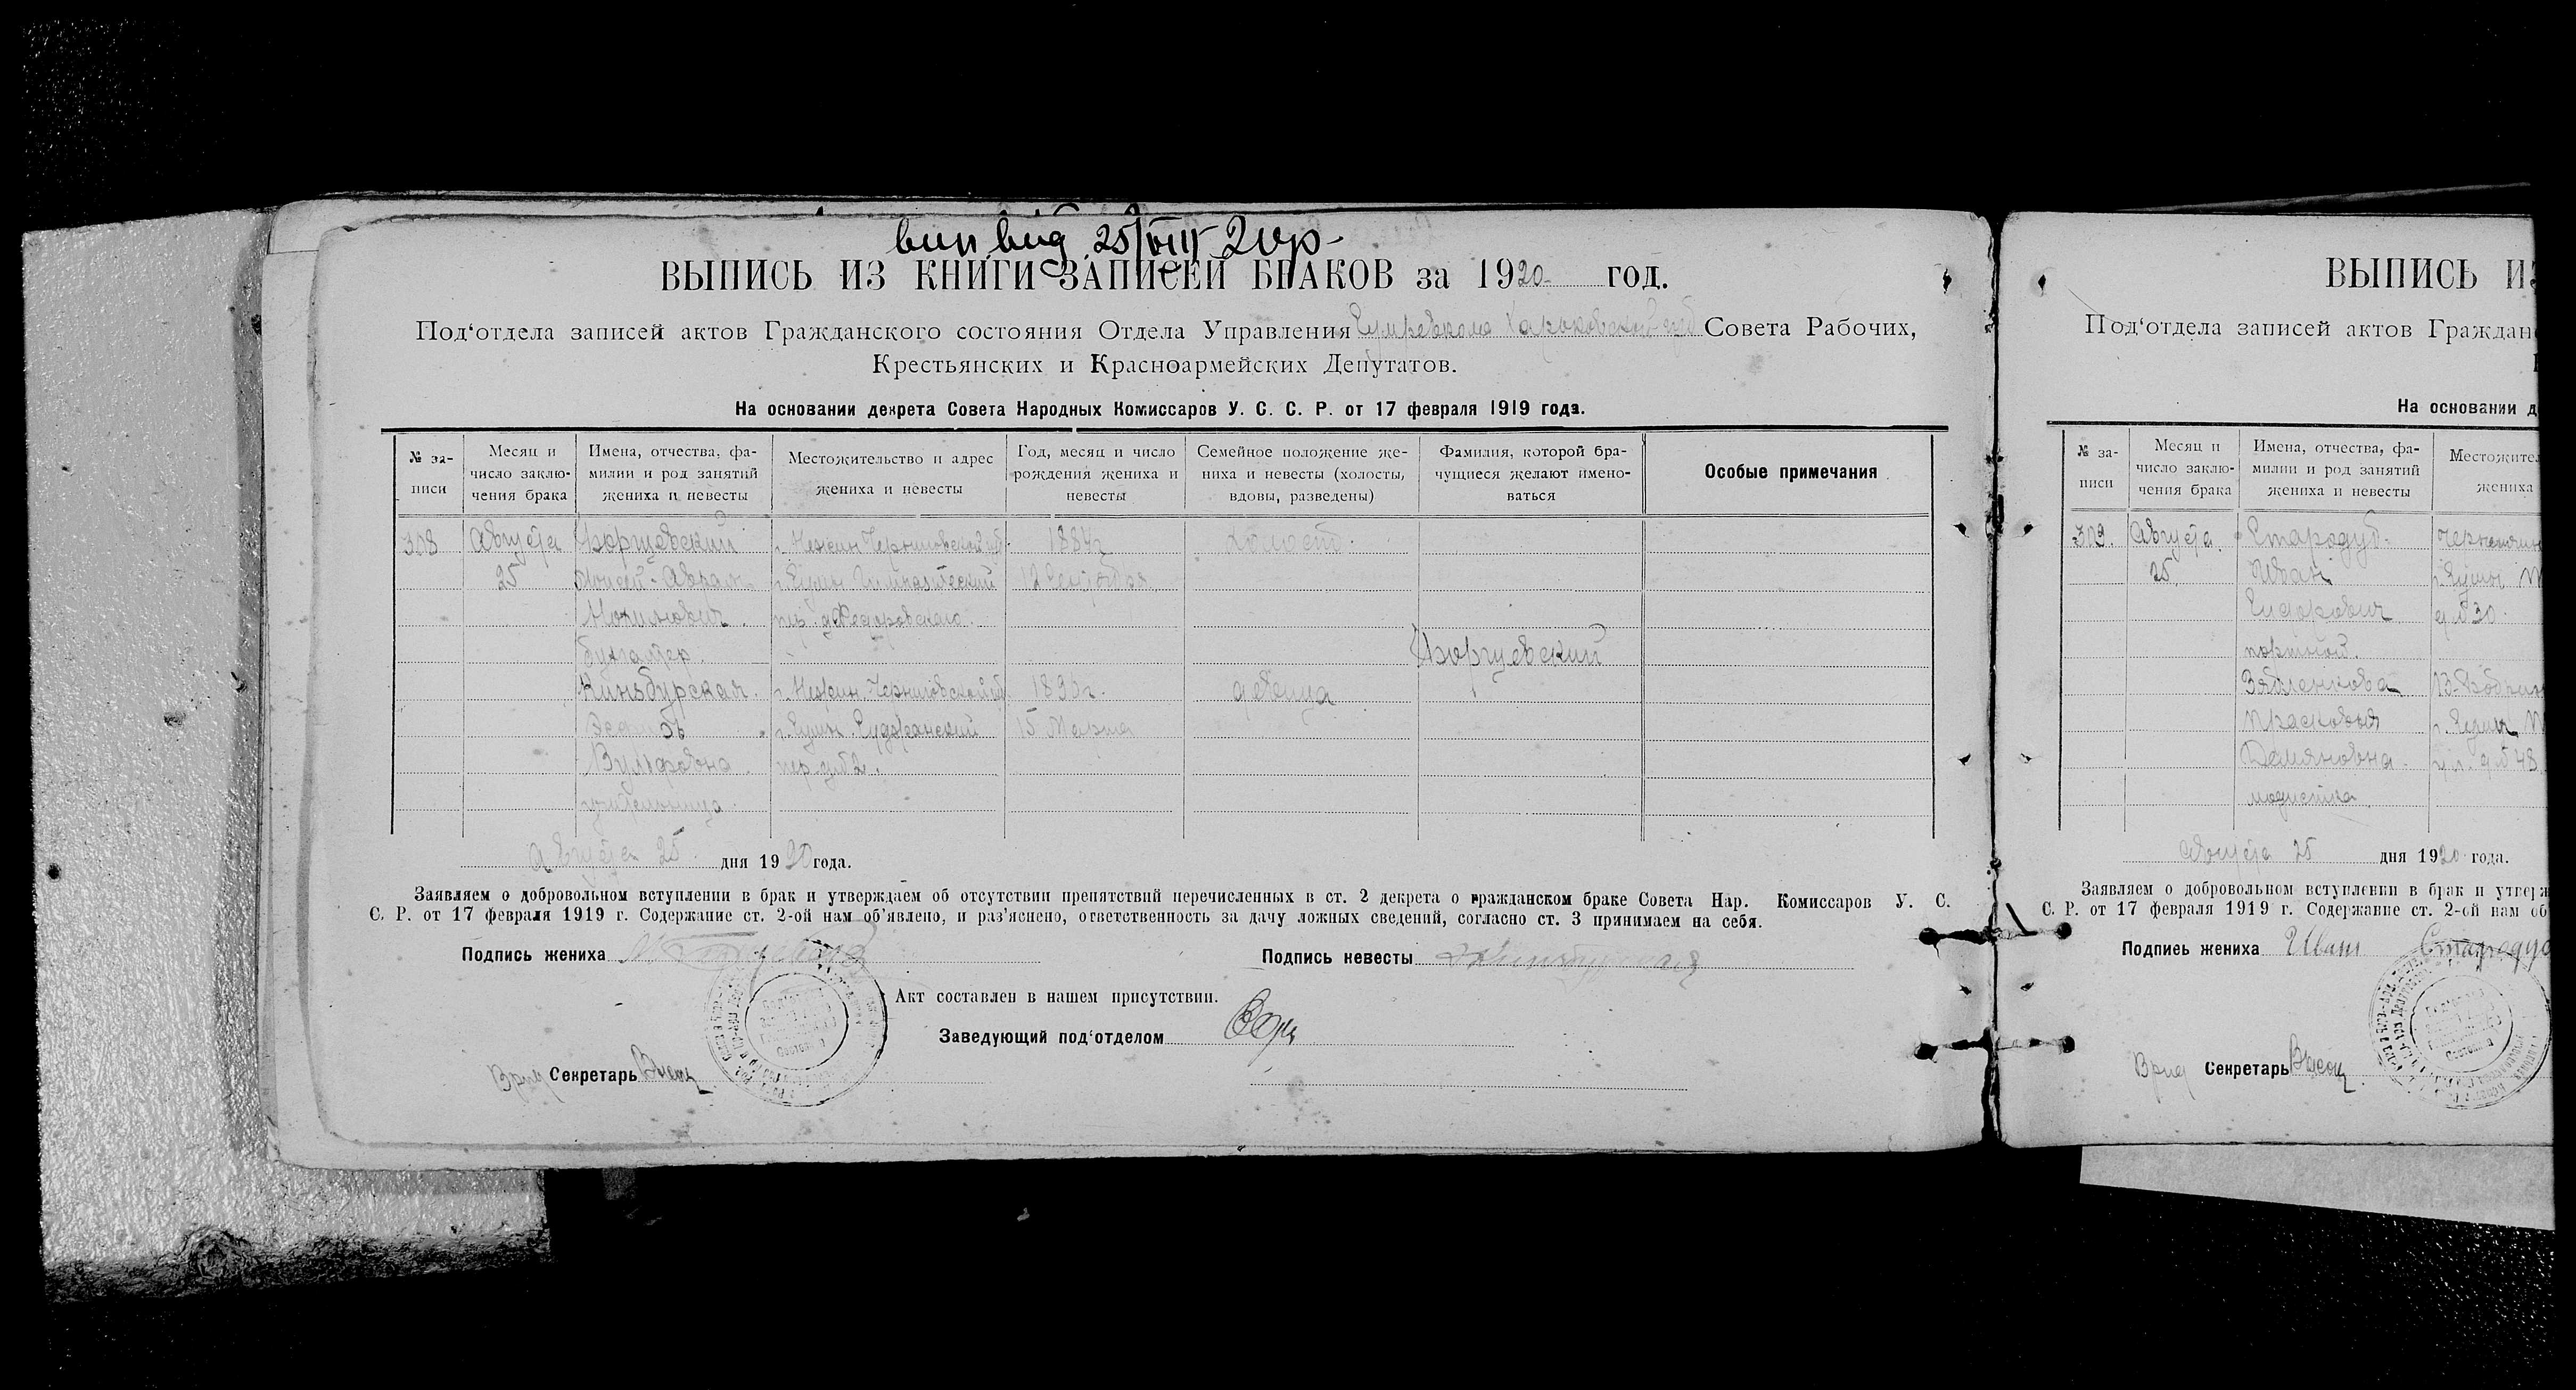 вип. вид. 25/VIII 20р-
ВЫПИСЬ ИЗ КНИГИ ЗАПИСЕЙ БРАКОВ за 1920 год.
Под‘отдела записей актов Гражданского состояния Отдела Управления Сумского Харьковской губ Совета Рабочих,
Крестьянских и Красноармейских Депутатов.
На основании декрета Совета Народных Комиссаров У. С. С. Р. от 17 февраля 1919 года.
№ за-
писи
Месяц и
число заклю-
чения брака
Имена, отчества, фа-
милии и род занятий
жениха и невесты
Местожительство и адрес
жениха и невесты
Год, месяц и число
рождения жениха и
невесты
Семейное положение же-
ниха и невесты (холосты,
вдовы, разведены)
Фамилия, которой бра-
чущиеся желают имено-
ваться
Особые примечания
308
Августа
25
Моисей-Абрам
бухгалтер.
Кинбурская
Вульфовна
учительница
г. Нежин Черниговской губ.
г. Сумы Гимназический
пер. д. Федоровского.
г. Нежин Черниговской губ.
г. Сумы
пер. д. № 2.
1884г
12 Сентября
1890г.
15 Марта
холост.
девица
августа 25 дня 1920 года.
Заявляем о добровольном вступлении в брак и утверждаем об отсутствии препятствий перечисленных в ст. 2 декрета о гражданском браке Совета Нар. Комиссаров У. С.
С. Р. от 17 февраля 1919 г. Содержание ст. 2-ой нам об‘явлено, и раз‘яснено, ответственность за дачу ложных сведений, согласно ст. 3 принимаем на себя.
Подпись жениха
Подпись невесты
Акт составлен в нашем присутствии.
Заведующий под‘отделом
Врид Секретарь
ВЫПИСЬ ИЗ
Под‘отдела записей актов Граждан
На основании д
№ за-
писи
Месяц и
число заклю-
чения брака
Имена, отчества, фа-
милии и род занятий
жениха и невесты
Местожител
жениха
309.
Августа
25.
Стародуб
Иван
Сидорович
портной.
Прасковья
Демяновна
модистка
г. Сумы
д. № 30.
г. Сумы
ул. д. № 48.
Августа 25 дня 1920 года.
Заявляем о добровольном вступлении в брак и утверж
С. Р. от 17 февраля 1919 г. Содержание ст. 2-ой нам об
Подпись жениха Иван Стародуб
Врид Секретарь